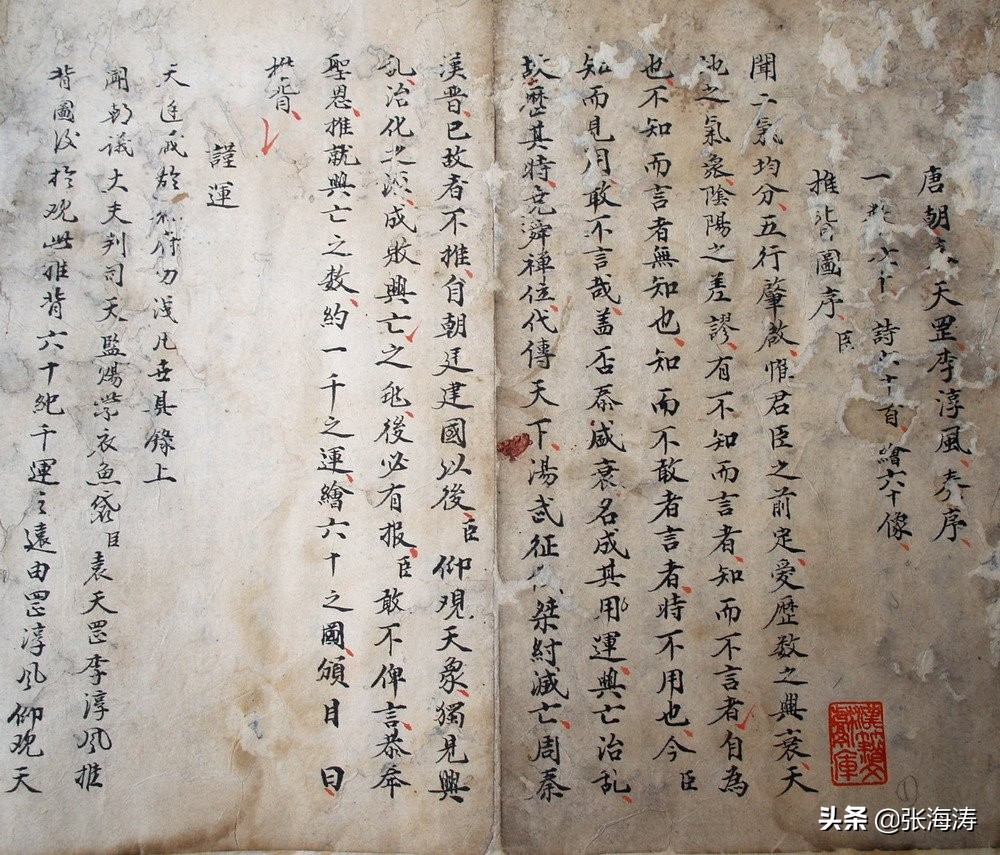 唐朝天罡李淳風奏序
一 六十詩六十首繪六十像
推背圖序臣
聞二氣均分五行肇啟惟君臣之前定爰歷数之興衰天
池之氣象陰陽之差謬有不知而言者知而不言者自為
也不知而言者無知也知而不敢者言者時不用也今臣
知而見用敢不言哉盖否泰咸衰名成其用運興亡治乱
故歷其時堯舜禅位代傳天下湯武征桀紂滅亡周秦
漢晋已故者不推自朝廷建國以後臣仰观天象獨見興
乱治化之源成敗興亡之兆後必有报臣敢不俾言恭奉
聖恩推載興亡之数約一千之運繪六十之國頒目曰
推背
謹運
天廷
府切淺凡世具錄上
聞朝議大夫判司天監賜紫衣魚袋臣袁天罡李淳风推
背圖後於观此推背六十纪千運之遠由罡淳风仰观天
頭条 @张海涛